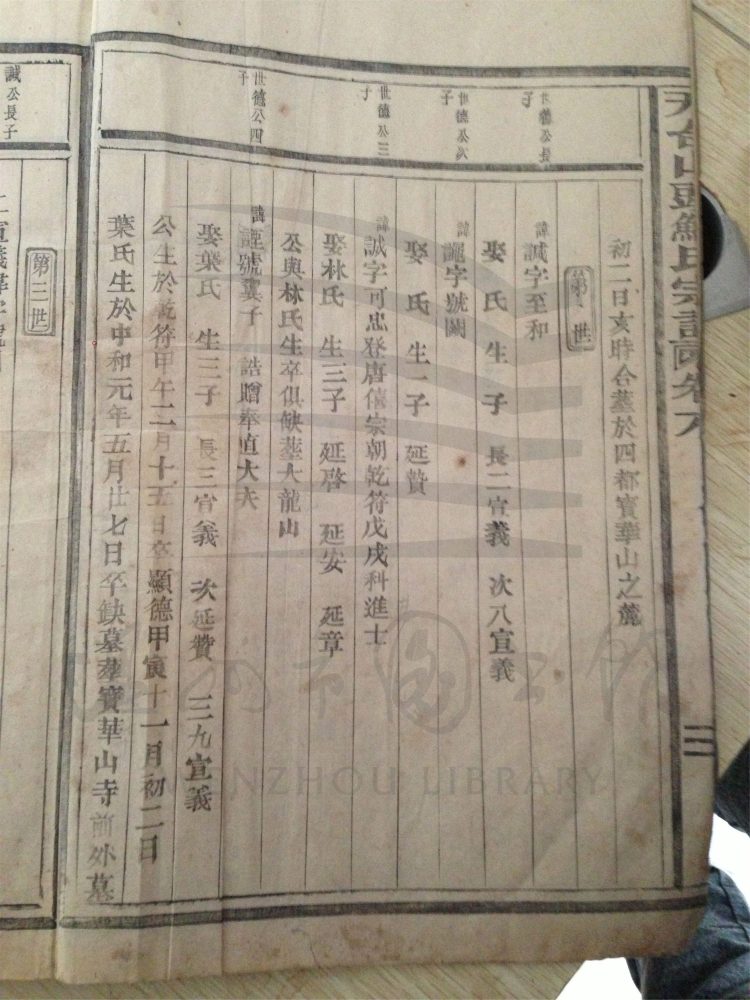 天台山頭蘇氏宗譜 卷八
三
初二日亥時合墓於四都寶華山之麓
第 世
世德公長子
諱諴字至和
娶 氏 生 子 長二宣義 次八宣義
世德公次子
諱 字號閫
娶 氏 生一子 延贊
世德公三子
諱誠字可忠登唐僖宗朝乾符戊戌科進士
娶林氏 生三子 延啓 延安 延章
公與林氏生卒俱缺墓大龍山
世德公四子
諱 號翼子 誥贈奉直大夫
娶葉氏 生三子 長三宣義 次延贊 三九宣義
公生於乾符甲午二月十五日卒顯德甲寅十一月初二日
葉氏生於中和元年五月廿七日卒缺墓葬寶華山寺前外墓
諴公長子
第三世
WENZHOU LIBRARY